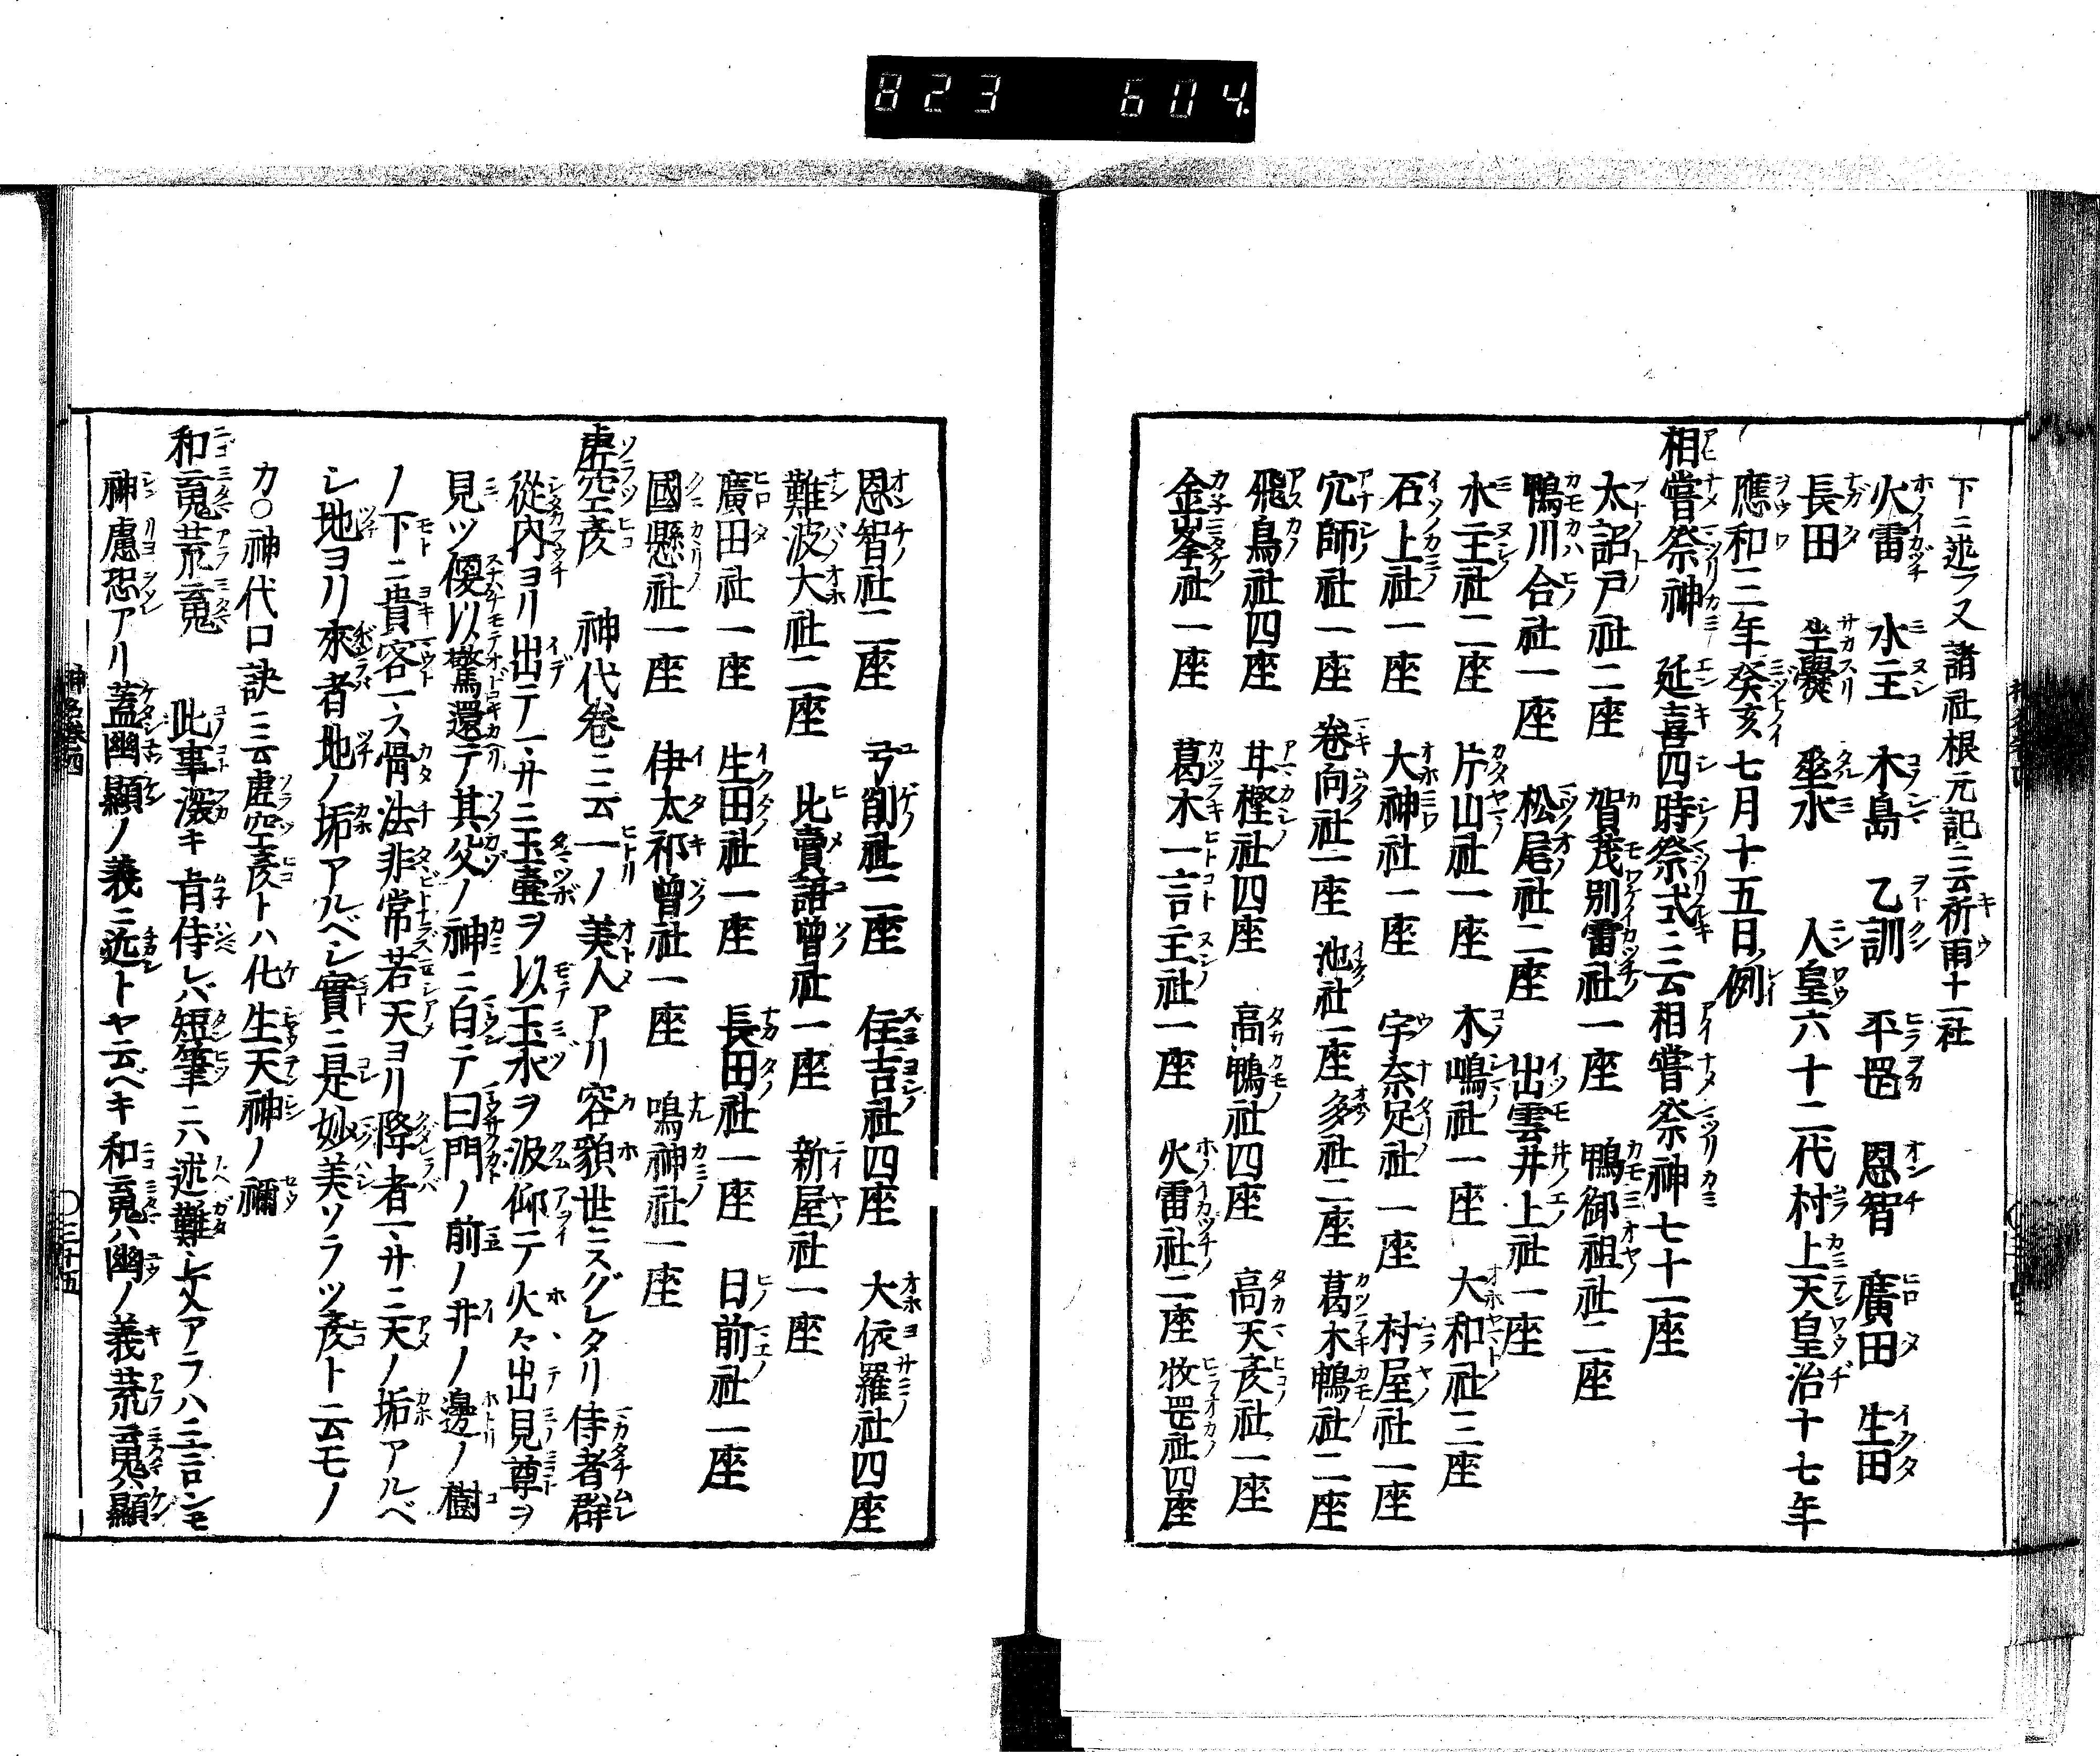 823 604.
下ニ述ラ又諸社根元記ニ云祈雨十一社
火雷 水主 木島 乙訓 平岡 恩智 廣田 生田
長田 坐摩 垂水 人皇六十二代村上天皇治十七年
應和三年癸亥七月十五日例
相嘗祭神 延喜四時祭式ニ云相嘗祭神七十一座
太詔戸社二座 賀茂別雷社一座 鴨御祖社二座
鴨川合社一座 松尾社二座 出雲井上社一座
水主社二座 片山社一座 木嶋社一座 大和社三座
石上社一座 大神社一座 宇奈足社一座 村屋社一座
穴師社一座 卷向社一座 池社一座 多社二座 葛木鴨社二座
飛鳥社四座 甘樫社四座 高鴨社四座 高天彦社一座
金峯社一座 葛木一言主社一座 火雷社二座 牧岡社四座
恩智社二座 弓削社二座 住吉社四座 大依羅社四座
難波大社二座 比賣語曾社一座 新屋社一座
廣田社一座 生田社一座 長田社一座 日前社一座
國懸社一座 伊太祁曾社一座 鳴神社一座
虚空彦 神代卷ニ云一ノ美人アリ容貌世ニスグレタリ侍者群
從内ヨリ出テ一井ニ玉壷ヲ以玉水ヲ汲仰テ火々出見尊ヲ
見ツ便以驚還テ其父ノ神ニ白テ曰門ノ前ノ井ノ邊ノ樹
ノ下ニ貴客一ス骨法非常若天ヨリ降者一井ニ天ノ垢アルベ
シ地ヨリ來者地ノ垢アルベシ實ニ是妙美ソラツ彦ト云モノ
カ〇神代口訣ニ云虚空彦トハ化生天神ノ禰
和魂荒魂 此事深キ旨侍レバ短筆ニハ述難シ
神慮恐アリ蓋幽顯ノ義ニ近トヤ云ベキ和魂ハ幽ノ義荒魂ハ顯
神名卷四
〇三十五